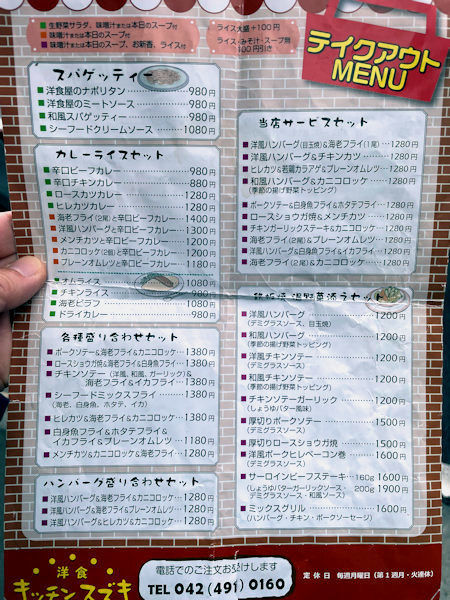 生野菜サラダ、味噌汁または本日のスープ付
味噌汁または本日のスープ付
味噌汁または本日のスープ、お新香、ライス付
ライス大盛+100円
ライス・みそ汁・スープ無
100円引き
テイクアウト
MENU
スパゲッティー
洋食屋のナポリタン 980円
洋食屋のミートソース 980円
和風スパゲッティー 980円
シーフードクリームソース 1080円
カレーライスセット
辛口ビーフカレー 980円
辛口チキンカレー 880円
ロースカツカレー 1280円
ヒレカツカレー 1280円
海老フライ(2尾)と辛口ビーフカレー 1400円
洋風ハンバーグと辛口ビーフカレー 1300円
メンチカツと辛口ビーフカレー 1200円
カニコロッケ(2個)と辛口ビーフカレー 1200円
プレーンオムレツと辛口ビーフカレー 1180円
オムライス 1080円
チキンライス 980円
海老ピラフ 1080円
ドライカレー 980円
各種盛り合わせセット
ポークソテー&海老フライ&カニコロッケ 1380円
ロースショウガ焼&海老フライ&白身魚フライ 1380円
チキンソテー(洋風、和風、ガーリック)&
海老フライ&イカフライ 1380円
シーフードミックスフライ 1380円
(海老、白身魚、ホタテ、イカ)
ヒレカツ&海老フライ&カニコロッケ 1380円
白身魚フライ&ホタテフライ&
イカフライ&プレーンオムレツ 1180円
メンチカツ&カニコロッケ&海老フライ 1280円
ハンバーグ盛り合わせセット
洋風ハンバーグ&海老フライ&カニコロッケ 1280円
洋風ハンバーグ&海老フライ&プレーンオムレツ 1280円
洋風ハンバーグ&ヒレカツ&カニコロッケ 1280円
当店サービスセット
洋風ハンバーグ(目玉焼)&海老フライ(1尾) 1280円
洋風ハンバーグ&チキンカツ 1280円
ヒレカツ&若鶏カラアゲ&プレーンオムレツ 1280円
和風ハンバーグ&カニコロッケ 1280円
(季節の揚げ野菜トッピング)
ポークソテー&白身魚フライ&ホタテフライ 1280円
ロースショウガ焼&メンチカツ 1280円
チキンガーリックステーキ&カニコロッケ 1280円
海老フライ(2尾)&プレーンオムレツ 1280円
洋風ハンバーグ&白身魚フライ&イカフライ 1280円
海老フライ&カニコロッケ 1280円
鉄板焼 温野菜添えセット
洋風ハンバーグ 1200円
(デミグラスソース、目玉焼)
和風ハンバーグ 1200円
(季節の揚げ野菜トッピング)
洋風チキンソテー 1200円
(デミグラスソース)
和風チキンソテー 1200円
(季節の揚げ野菜トッピング)
チキンソテーガーリック 1200円
(しょうゆバター風味)
厚切りポークソテー 1500円
(デミグラスソース)
厚切りロースショウガ焼 1500円
洋風ポークヒレベーコン巻 1600円
(デミグラスソース)
サーロインビーフステーキ 160g 1600円
(しょうゆバターガーリックソース・ 200g 1900円
デミグラスソース・和風ソース)
ミックスグリル 1600円
(ハンバーグ・チキン・ポークソーセージ)
洋食
キッチンスズキ
電話でのご注文お受けします
TEL 042(491)0160
定休日 毎週月曜日(第1週月・火連休)